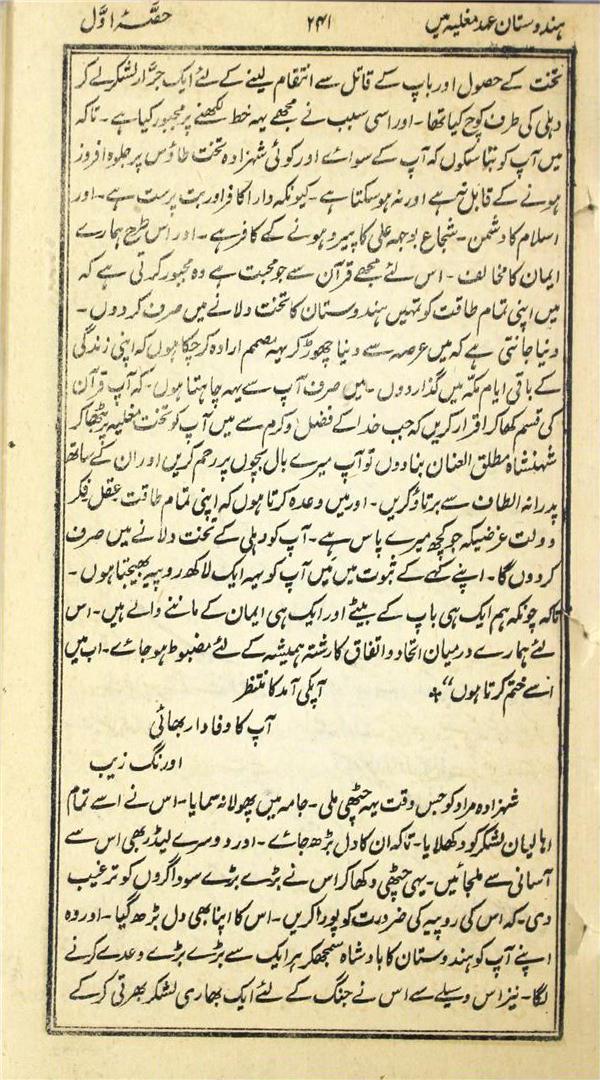 ہندوستان عہد مغلیہ میں ۲۴۱ حصّہ اوّل
تخت کے حصول اور باپ کے قاتل سے انتقام لینے کے لئے ایک جرّار لشکر لے کر
دہلی کی طرف کوچ کیا تھا۔ اور اسی سبب نے مجھے یہہ خط لکھنے پر مجبور کیا ہے۔ تاکہ
میں آپ کو بتا سکوں کہ آپ کے سوائے اور کوئی شہزادہ تخت طاؤس پر جلوہ افروز
ہونے کے قابل نہ ہے اور نہ ہوسکتا ہے۔ کیونکہ دارا کافر اور بت پرست ہے۔ اور
اسلام کا دشمن۔ شجاع بوجہ علی کا پیرو ہونے کے کافر ہے۔ اور اس طرح ہمارے
ایمان کا مخالف۔ اس لئے مجھے قرآن سے جو محبت ہے وہ مجبور کرتی ہے کہ
میں اپنی تمام طاقت کو تمہیں ہندوستان کا تخت دلانے میں صرف کردوں۔
دنیا جانتی ہے کہ میں عرصہ سے دنیا چھوڑ کر یہہ مصمم ارادہ کرچکا ہوں کہ اپنی زندگی
کے باقی ایام مکّہ میں گذاردوں۔ میں صرف آپ سے یہہ چاہتا ہوں۔ کہ آپ قرآن
کی قسم کھاکر اقرار کریں کہ جب خدا کے فضل وکرم سے میں آپ کو تخت مغلیہ پر بٹھاکر
شہنشاہ مطلق العنان بنادوں تو آپ میرے بال بچوں پر رحم کریں اور ان کے ساتھ
پدرانہ الطاف سے برتاؤ کریں۔ اور میں وعدہ کرتا ہوں کہ اپنی تمام طاقت عقل فکر
دولت غرضیکہ جو کچھ میرے پاس ہے۔ آپ کو دہلی کے تخت دلانے میں صرف
کردوں گا۔ اپنے کہے کے ثبوت میں میں آپ کو یہہ ایک لاکھ روپیہ بھیجتا ہوں۔
تاکہ چونکہ ہم ایک ہی باپ کے بیٹے اور ایک ہی ایمان کے ماننے والے ہیں۔ اس
لئے ہمارے درمیان اتحاد و اتفاق کا رشتہ ہمیشہ کے لئے مضبوط ہو جائے۔ اب میں
اسے ختم کرتا ہوں“ + آپکی آمد کا منتظر
آپ کا وفادار بھائی
اورنگ زیب
شہزادہ مراد کو جس وقت یہہ چٹھی ملی۔ جامہ میں پھولا نہ سمایا۔ اس نے اسے تمام
اہالیان لشکر کو دکھلایا۔ تاکہ ان کا دل بڑھ جائے۔ اور دوسرے لیڈر بھی اس سے
آسانی سے ملجائیں۔ یہی چٹھی دکھاکر اس نے بڑے بڑے سوداگروں کو ترغیب
دی۔ کہ اس کی روپیہ کی ضرورت کو پورا کریں۔ اس کا اپنا بھی دل بڑھ گیا۔ اور وہ
اپنے آپ کو ہندوستان کا بادشاہ سمجھکر ہر ایک سے بڑے بڑے وعدے کرنے
لگا۔ نیز اس وسیلے سے اس نے جنگ کے لئے ایک بھاری لشکر بھرتی کرکے